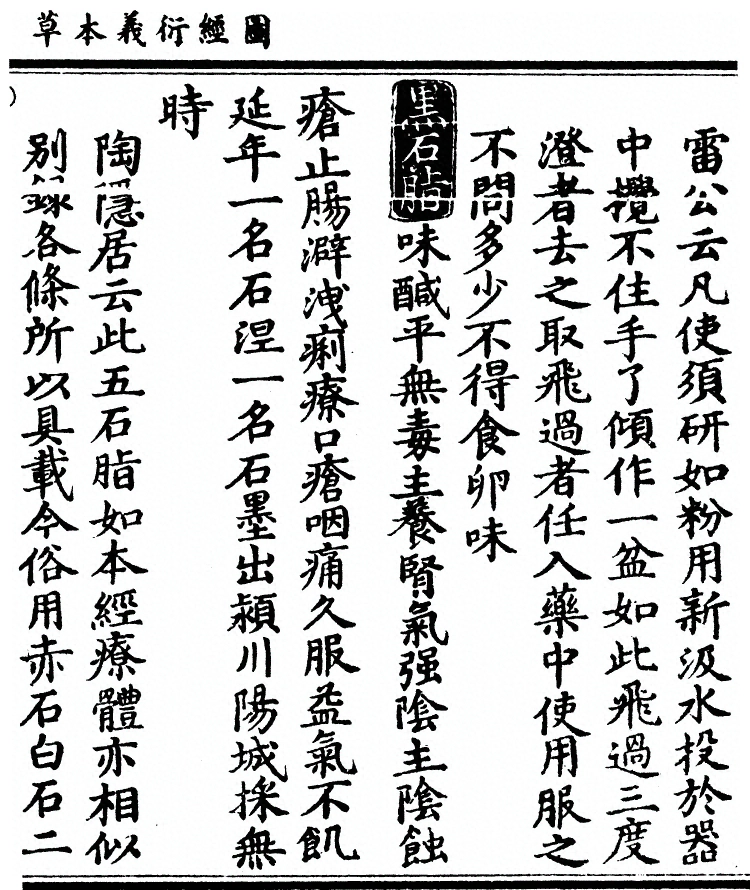 圖經衍義本草
雷公云凡使須研如粉用新汲水投於器
中攪不住手了傾作一盆如此飛過三度
澄者去之取飛過者任入藥中使用服之
不問多少不得食卵味
黑石脂味鹹平無毒主養腎氣强陰主陰蝕
瘡止腸澼洩痢療口瘡咽痛久服益氣不飢
延年一名石涅一名石墨出潁川陽城採無
時
陶隱居云此五石脂如本經療體亦相似
別錄各條所以具載今俗用赤石白石二